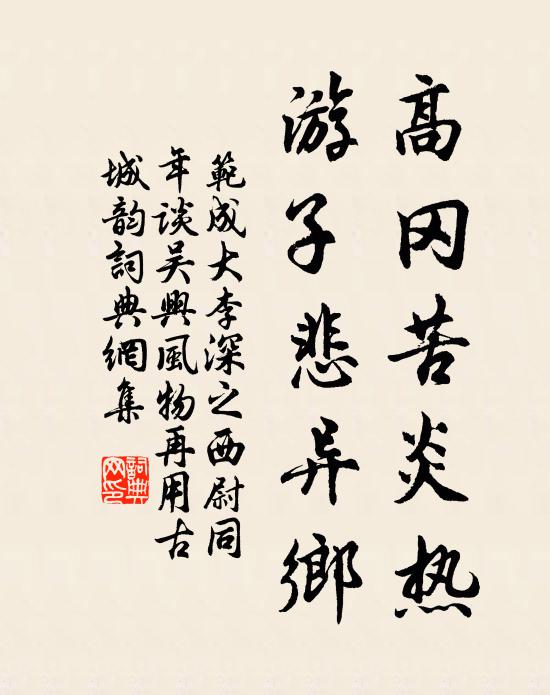 高冈苦炎热
游子悲异鄉
範成大李深之西尉同
年談吴興風物再用古
城韵詞典網集
詞典网印